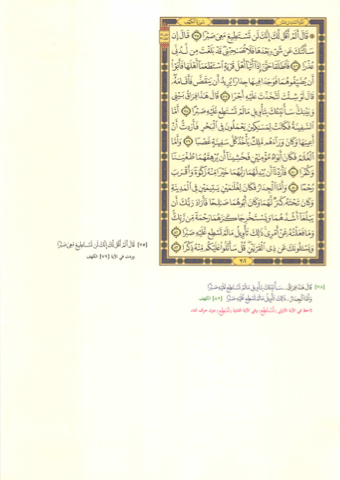 الجزء السادس عشر سورة الكهف
۞ قَالَ أَلَمْ أَقُل لَّكَ إِنَّكَ لَن تَسْتَطِيعَ مَعِيَ صَبْرًا ٧٥ قَالَ إِن
سَأَلْتُكَ عَن شَيْءٍ بَعْدَهَا فَلَا تُصَاحِبْنِي قَدْ بَلَغْتَ مِن لَّدُنِّي
عُذْرًا ٧٦ فَانطَلَقَا حَتَّىٰ إِذَا أَتَيَا أَهْلَ قَرْيَةٍ اسْتَطْعَمَا أَهْلَهَا فَأَبَوْا
أَن يُضَيِّفُوهُمَا فَوَجَدَا فِيهَا جِدَارًا يُرِيدُ أَن يَنقَضَّ فَأَقَامَهُ
قَالَ لَوْ شِئْتَ لَتَّخَذْتَ عَلَيْهِ أَجْرًا ٧٧ قَالَ هَٰذَا فِرَاقُ بَيْنِي
وَبَيْنِكَ سَأُنَبِّئُكَ بِتَأْوِيلِ مَا لَمْ تَسْتَطِع عَّلَيْهِ صَبْرًا ٧٨ أَمَّا
السَّفِينَةُ فَكَانَتْ لِمَسَاكِينَ يَعْمَلُونَ فِي الْبَحْرِ فَأَرَدتُّ أَنْ
أَعِيبَهَا وَكَانَ وَرَاءَهُم مَّلِكٌ يَأْخُذُ كُلَّ سَفِينَةٍ غَصْبًا ٧٩ وَأَمَّا
الْغُلَامُ فَكَانَ أَبَوَاهُ مُؤْمِنَيْنِ فَخَشِينَا أَن يُرْهِقَهُمَا طُغْيَانًا
وَكُفْرًا ٨٠ فَأَرَدْنَا أَن يُبْدِلَهُمَا رَبُّهُمَا خَيْرًا مِّنْهُ زَكَاةً وَأَقْرَبَ
رُحْمًا ٨١ وَأَمَّا الْجِدَارُ فَكَانَ لِغُلَامَيْنِ يَتِيمَيْنِ فِي الْمَدِينَةِ
وَكَانَ تَحْتَهُ كَنزٌ لَّهُمَا وَكَانَ أَبُوهُمَا صَالِحًا فَأَرَادَ رَبُّكَ أَن
يَبْلُغَا أَشُدَّهُمَا وَيَسْتَخْرِجَا كَنزَهُمَا رَحْمَةً مِّن رَّبِّكَ
وَمَا فَعَلْتُهُ عَنْ أَمْرِي ذَٰلِكَ تَأْوِيلُ مَا لَمْ تَسْطِع عَّلَيْهِ صَبْرًا ٨٢
وَيَسْأَلُونَكَ عَن ذِي الْقَرْنَيْنِ قُلْ سَأَتْلُو عَلَيْكُم مِّنْهُ ذِكْرًا ٨٣
[٧٥] قَالَ أَلَمْ أَقُل لَّكَ إِنَّكَ لَن تَسْتَطِيعَ مَعِيَ صَبْرًا
وردت في الآية [٧٢] الكهف
[٧٨] قَالَ هَٰذَا فِرَاقُ.. سَأُنَبِّئُكَ بِتَأْوِيلِ مَا لَمْ تَسْتَطِع عَّلَيْهِ صَبْرًا
وَأَمَّا الْجِدَارُ.. ذَٰلِكَ تَأْوِيلُ مَا لَمْ تَسْطِع عَّلَيْهِ صَبْرًا [٨٢] الكهف
لاحظ في الآية الأولى (تَسْتَطِع) وفي الآية الثانية (تَسْطِع) بدون حرف التاء